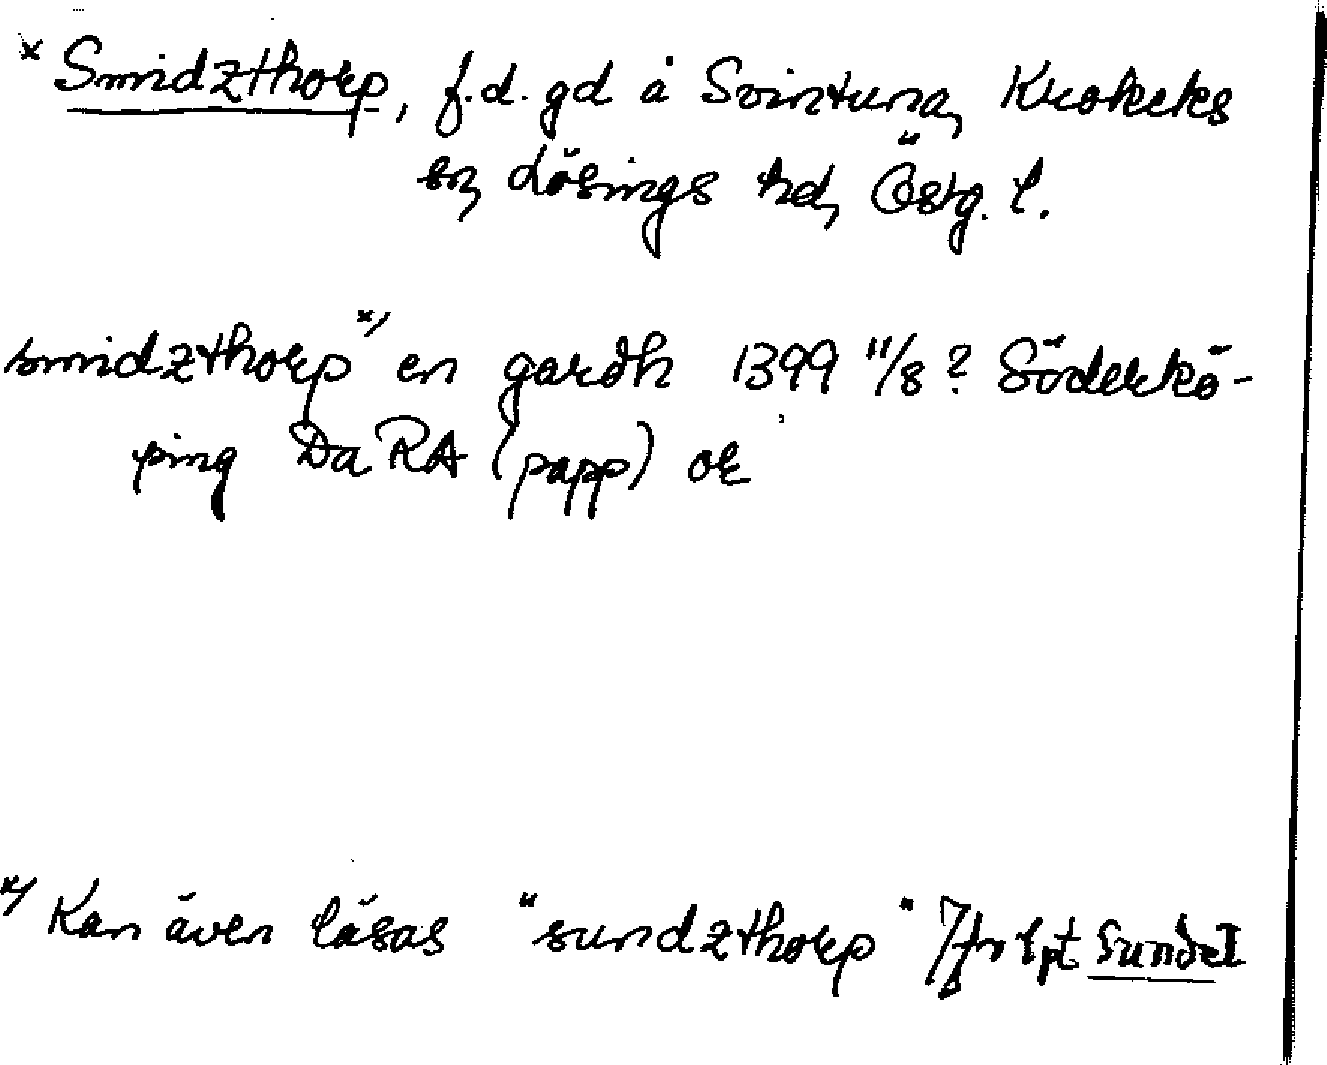 * Smidzthorp, f.d. gd å Svintuna, Krokeks
sn, Lösings hd, Östg. l.
smidzthorp *) en gardh 1399 11/8? Söderkö-
ping Da RA (papp) or
*) Kan även läsas "sundzthorp" Jfr lpt Sundet